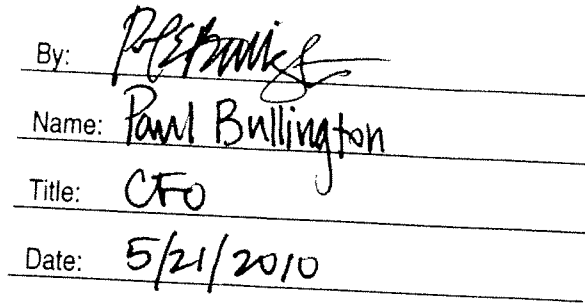 By:
Name: Paul Bullington
Title: CFO
Date: 5/21/2010